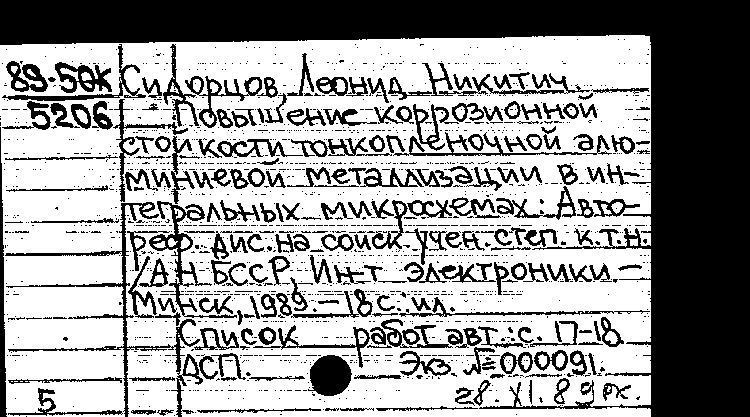 89-50к Сидорцов, Леонид Никитич.
5206 Повышение коррозионной
стойкости тонкопленочной алю-
миниевой металлизации в ин-
тегральных микросхемах: Авто-
реф. дис. на соиск. учен. степ. к.т.н.
/АН БССР, Ин-т электроники.-
Минск, 1989.-18 с.: ил.
Список работ авт.: с. 17-18
ДСП. Экз. №000091.
5 28.XI.89